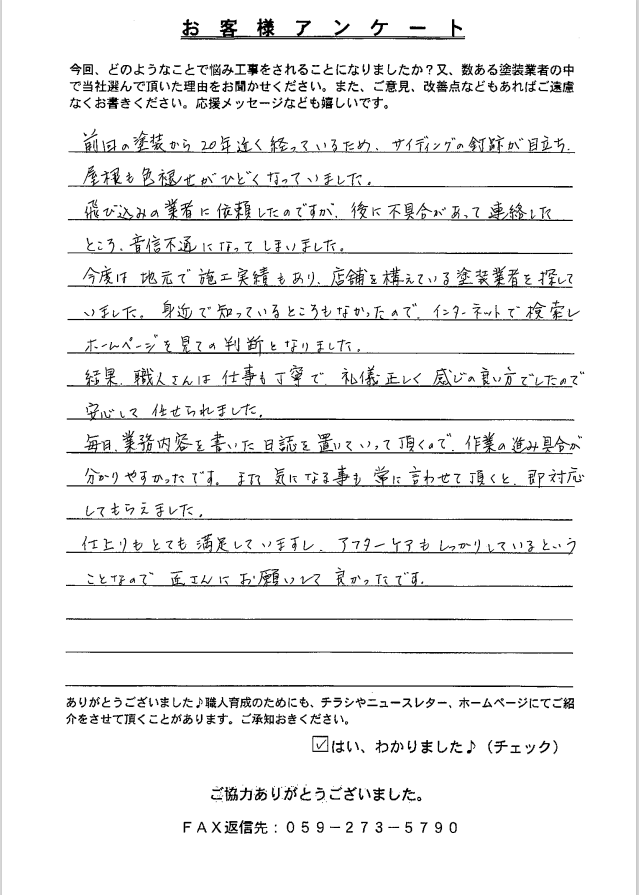 お客様アンケート
今回、どのようなことで悩み工事をされることになりましたか？又、数ある塗装業者の中
で当社選んで頂いた理由をお聞かせください。また、ご意見、改善点などもあればご遠慮
なくお書きください。応援メッセージなども嬉しいです。
前回の塗装から20年近く経っているため、サイディングの釘跡が目立ち、
屋根も色褪せがひどくなっていました。
飛び込みの業者に依頼したのですが、後に不具合があって連絡した
ところ、音信不通になってしまいました。
今度は地元で施工実績もあり、店舗を構えている塗装業者を探して
いました。身近で知っているところもなかったので、インターネットで検索し
ホームページを見ての判断となりました。
結果、職人さんは仕事も丁寧で、礼儀正しく感じの良い方でしたので
安心して任せられました。
毎日、業務内容を書いた日誌を置いていって頂くので、作業の進み具合が
分かりやすかったです。また気になる事も常に言わせて頂くと、即対応
してもらえました。
仕上りもとても満足していますし、アフターケアもしっかりしているという
ことなので匠さんにお願いして良かったです。
ありがとうございました♪職人育成のためにも、チラシやニュースレター、ホームページにてご紹
介をさせて頂くことがあります。ご承知おきください。
☑はい、わかりました♪（チェック）
ご協力ありがとうございました。
ＦＡＸ返信先：０５９－２７３－５７９０